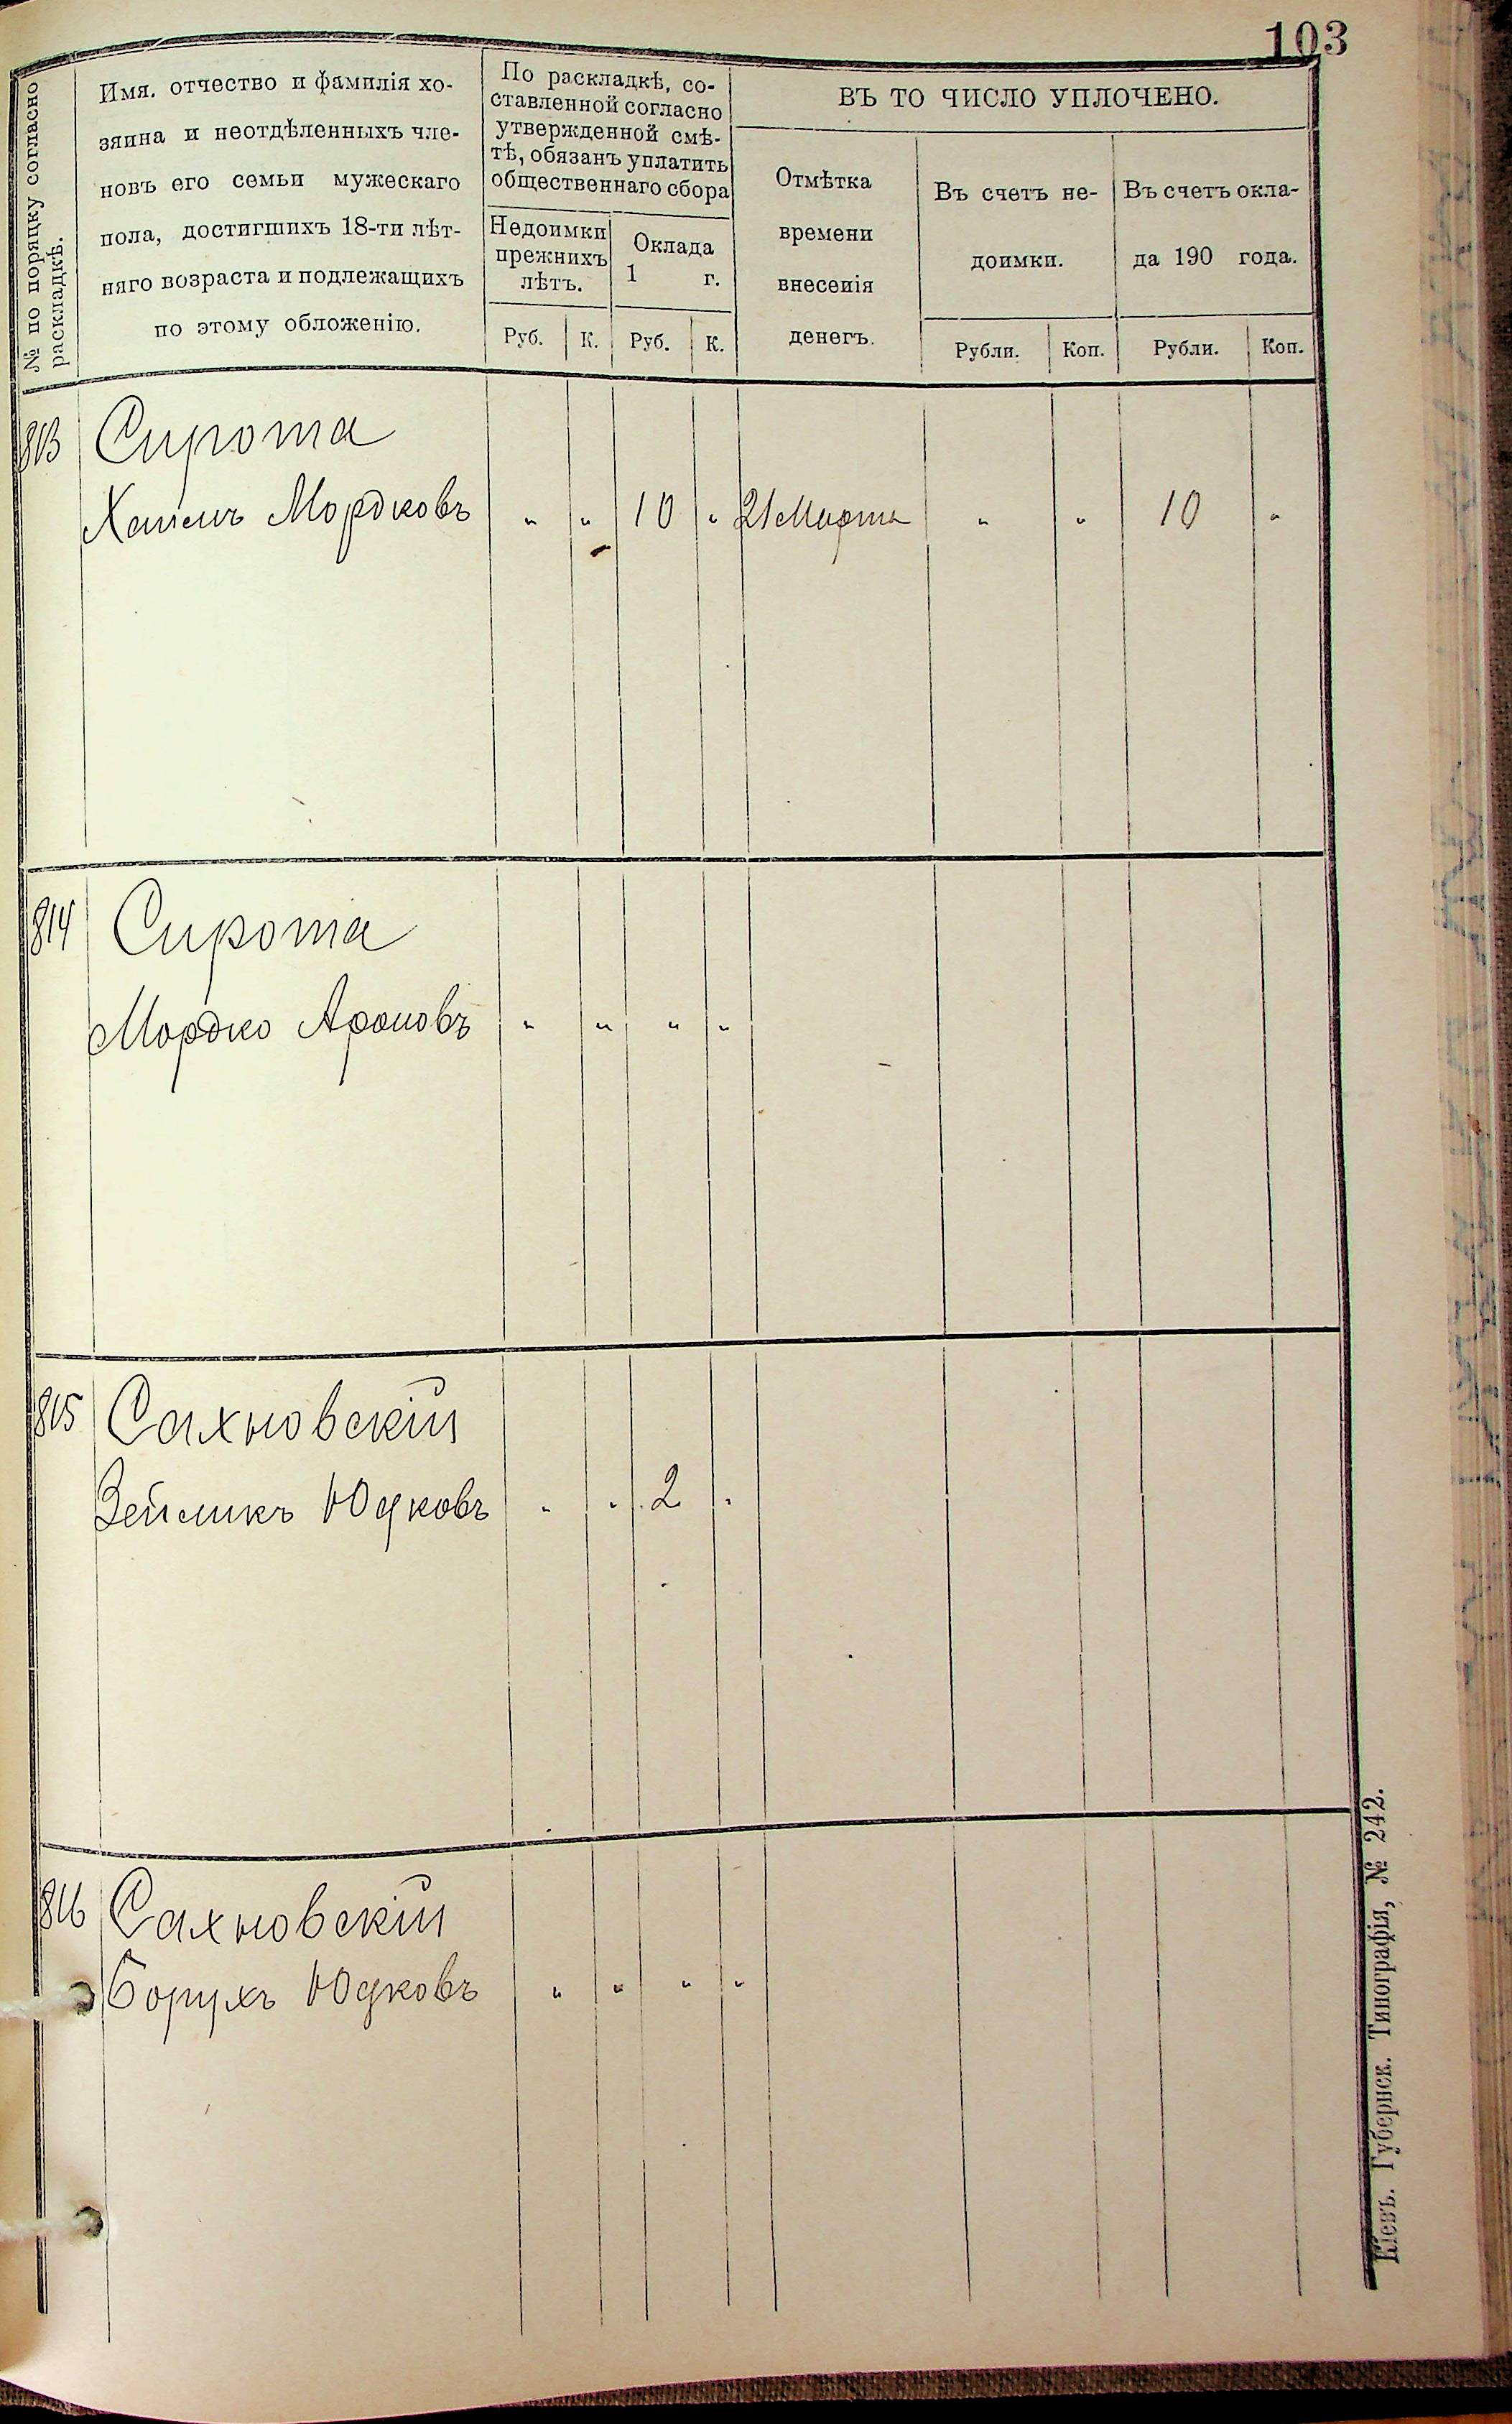 103
№ по поряцку согласно
раскладкѣ.
Имя. отчество и фамилія хо-
зяина и неотдѣленныхъ чле-
новъ его семьи мужескаго
пола, достигшихъ 18-ти лѣт-
няго возраста и подлежащихъ
по этому обложенію.
По раскладкѣ, со-
ставленной согласно
утвержденной смѣ-
тѣ, обязанъ уплатить
общественнаго сбора
Недоимки
прежнихъ
лѣтъ.
Оклада
1 г.
Руб. К. Руб. К.
ВЪ ТО ЧИСЛО УПЛОЧЕНО.
Отмѣтка
времени
внесенія
денегъ.
Въ счетъ не-
доимки.
Въ счетъ окла-
да 190 года.
Рубли. Коп. Рубли. Коп.
813 Сирота
Хаимъ Мордковъ " " 10 " 21 Марта " " 10 "
814 Сирота
Мордко Ароновъ " " " "
815 Сахновскій
Зейликъ Юдковъ " " 2 "
816 Сахновскій
Борухъ Юдковъ " " " "
Кіевъ. Губернск. Типографія, № 242.